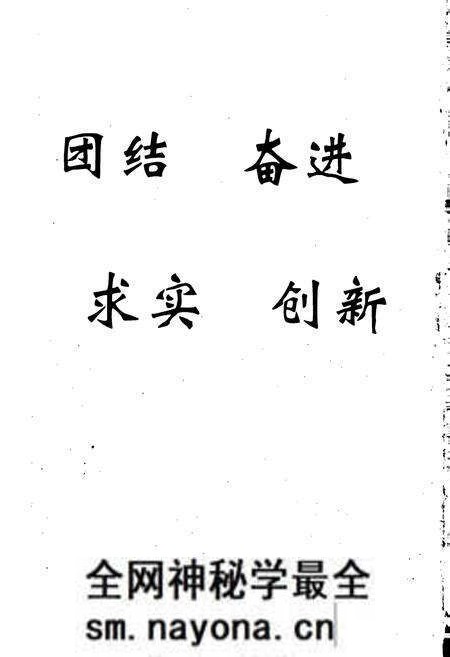 团结 奋进
求实 创新
全网神秘学最全
sm.nayona.cn